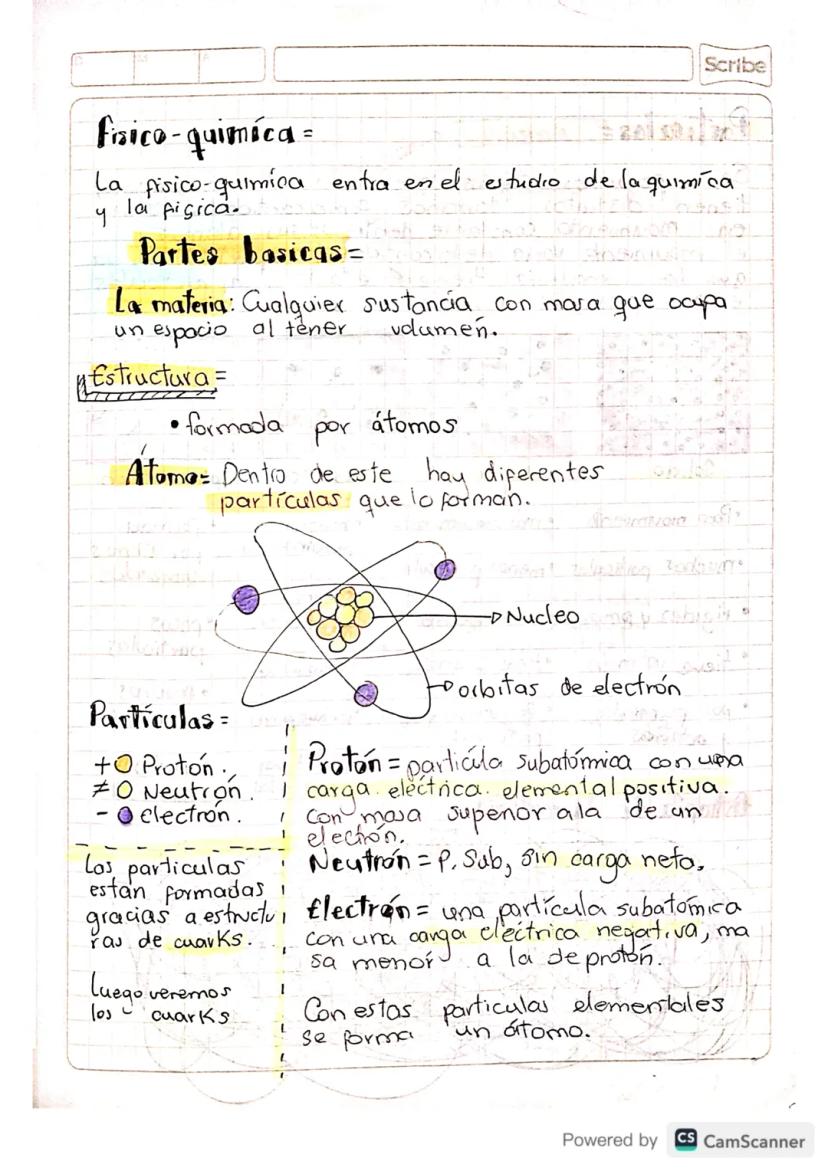 Scribe
Fisico-quimíca=
La fisico-quimica entra en el estudio de la quimica
y la fisica.
Partes basicas=
La materia: Cualquier sustancia con masa que ocupa
un espacio al tener volumen.
Estructura=
• formada por átomos
Átomo= Dentro de este hay diferentes
partículas que lo forman.
Nucleo
orbitas de electrón
Partículas=
+ Protón.
≠ Neutrón.
- electrón.
Las particulas
están formadas
gracias a estructu
ras de cuarks.
Luego veremos
los cuarks
Protón= partícula subatómica con una
carga eléctrica elemental positiva.
Con masa superior a la de un
electrón.
Neutrón = P. Sub, sin carga neta.
Electrón= una partícula subatómica
con una carga eléctrica negativa, ma
sa menor a la de protón.
Con estas particulas elementales
se forma un átomo.
Powered by CS CamScanner